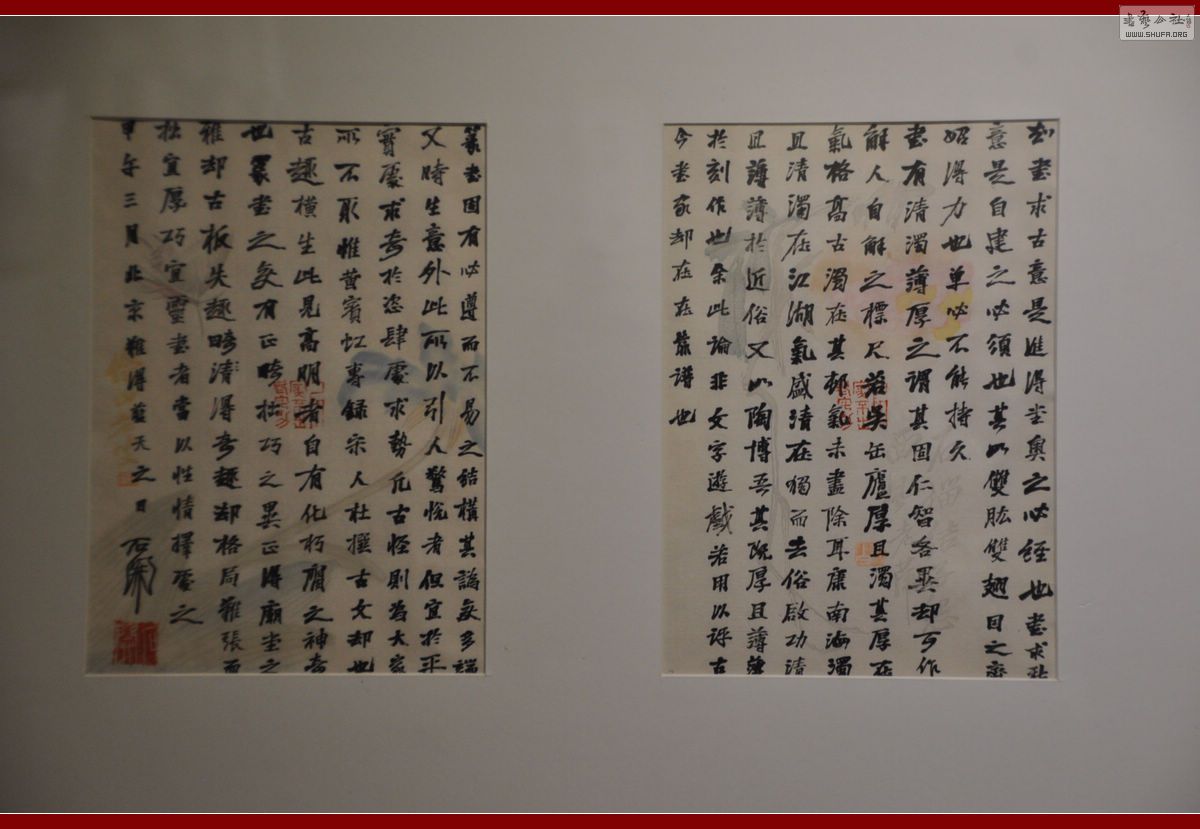 刻書求古意是進得堂奧之必經也書求
意是自建之必須也其如雙肱雙翅回之
始得力也單必不能持久
書有清濁薄厚之謂其固仁智各異却可作
解人自解之標尺若吳缶廬厚且濁其厚在
氣格高古濁在其郁氣未盡除耳康南海濁
且清濁在江湖氣盛清在獨而去俗啟功清
且薄薄於近俗又如陶博吾其既厚且薄薄
於刻作也余此論非文字遊戲若用以評古
今書家却在在靠譜也
篆書固有必遵而不易之結構其譌變多端
又時生意外此所以引人驚悅者但宜於平
實處求奇於恣肆處求勢凡古怪則為大家
所不取惟黃賓虹專錄宋人杜撰古文却也
古趣橫生此見高明者自有化朽腐之神奇
也篆書之變有正時拙巧之異正得廟堂之
雅却古板失趣時清得奇趣却格局難張而
拙宜厚巧宜靈書者當以性情擇處之
甲午三月北京難得藍天之日
石開
WWW.SHUFA.ORG